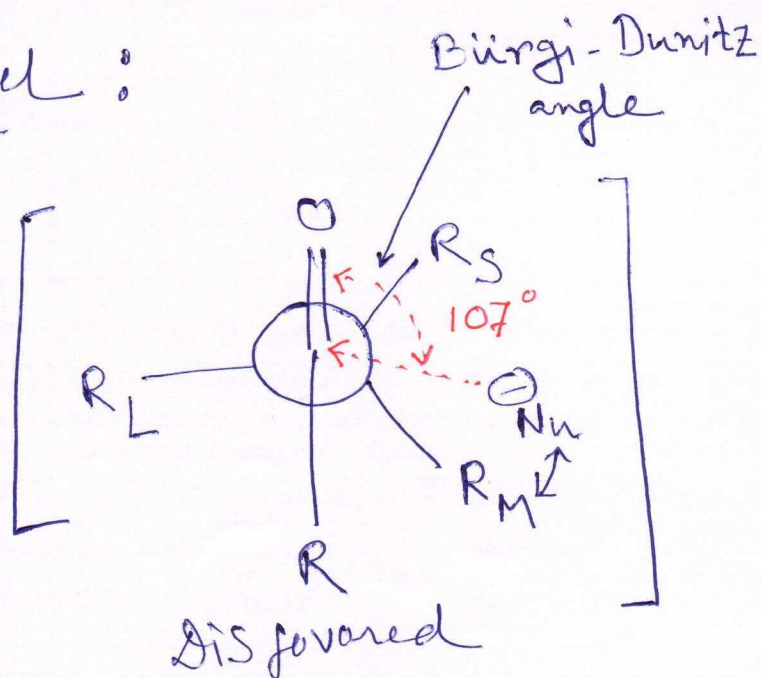 el :
Bürgi-Dunitz
angle
O
R S
107°
R L
⊖
Nu
R M
R
Disfovored